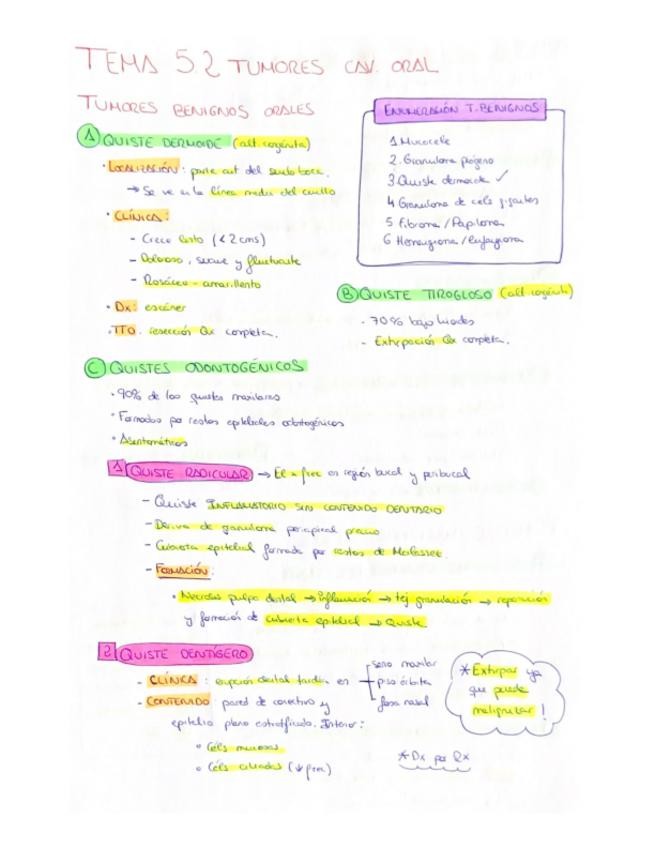 TEMA 52 TUMORES CAV. ORAL
TUMORES BENIGNOS ORALES
A QUISTE DERMOIDE (alt. congénita)
· LOCALIZACIÓN: parte ant del suelo boca.
→ Se ve en la línea media del cuello
· CLÍNICA:
- Crece lento (<2 cms)
- Doloroso, suave y fluctuante
- Rosáceo - amarillento
· Dx: escáner
· TTO: resección Qx completa.
ENUMERACIÓN T. BENIGNOS
1 Mucocele
2. Granuloma piógeno
3 Quiste dermoide ✓
4 Granuloma de cels gigantes
5 Fibroma / Papiloma
6 Hemangioma / linfangioma
B QUISTE TIROGLOSO (alt. congénita)
- 70% bajo hioides
- Extirpación Qx completa.
C QUISTES ODONTOGÉNICOS
· 90% de los quistes maxilares
· Formados por restos epiteliales odontogénicos
· Asintomáticos
1 QUISTE RADICULAR → El + frec en región bucal y peribucal
- Quiste INFLAMATORIO SIN CONTENIDO DENTARIO
- Deriva de granuloma periapical previo
- Cubierta epitelial formada por restos de Malassez.
- FORMACIÓN:
· Necrosis pulpa dental → inflamación → tej granulación → reparación
y formación de cubierta epitelial → Quiste
2 QUISTE DENTÍGERO
- CLÍNICA: erupción dental tardía en
seno maxilar
piso órbita
fosa nasal
- CONTENIDO: pared de conectivo y
epitelio plano estratificado. Interior:
· Céls mucosas
· Céls ciliadas (↓ frec)
* Extirpar ya
que puede
malignizar!
* Dx por Rx